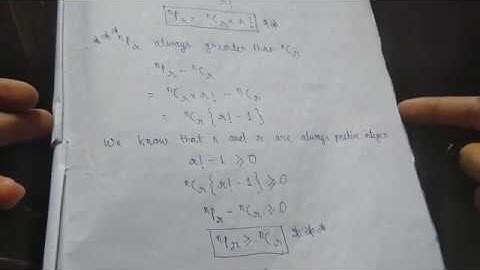 r!
ⁿPᵣ = ⁿCᵣ × r! **
*** ⁿPᵣ always greater than ⁿCᵣ
ⁿPᵣ - ⁿCᵣ
= ⁿCᵣ × r! - ⁿCᵣ
= ⁿCᵣ {r! - 1}
We know that n and r are always positive integer
r! - 1 ⩾ 0
ⁿCᵣ {r! - 1} ⩾ 0
ⁿPᵣ - ⁿCᵣ ⩾ 0
ⁿPᵣ ⩾ ⁿCᵣ ***